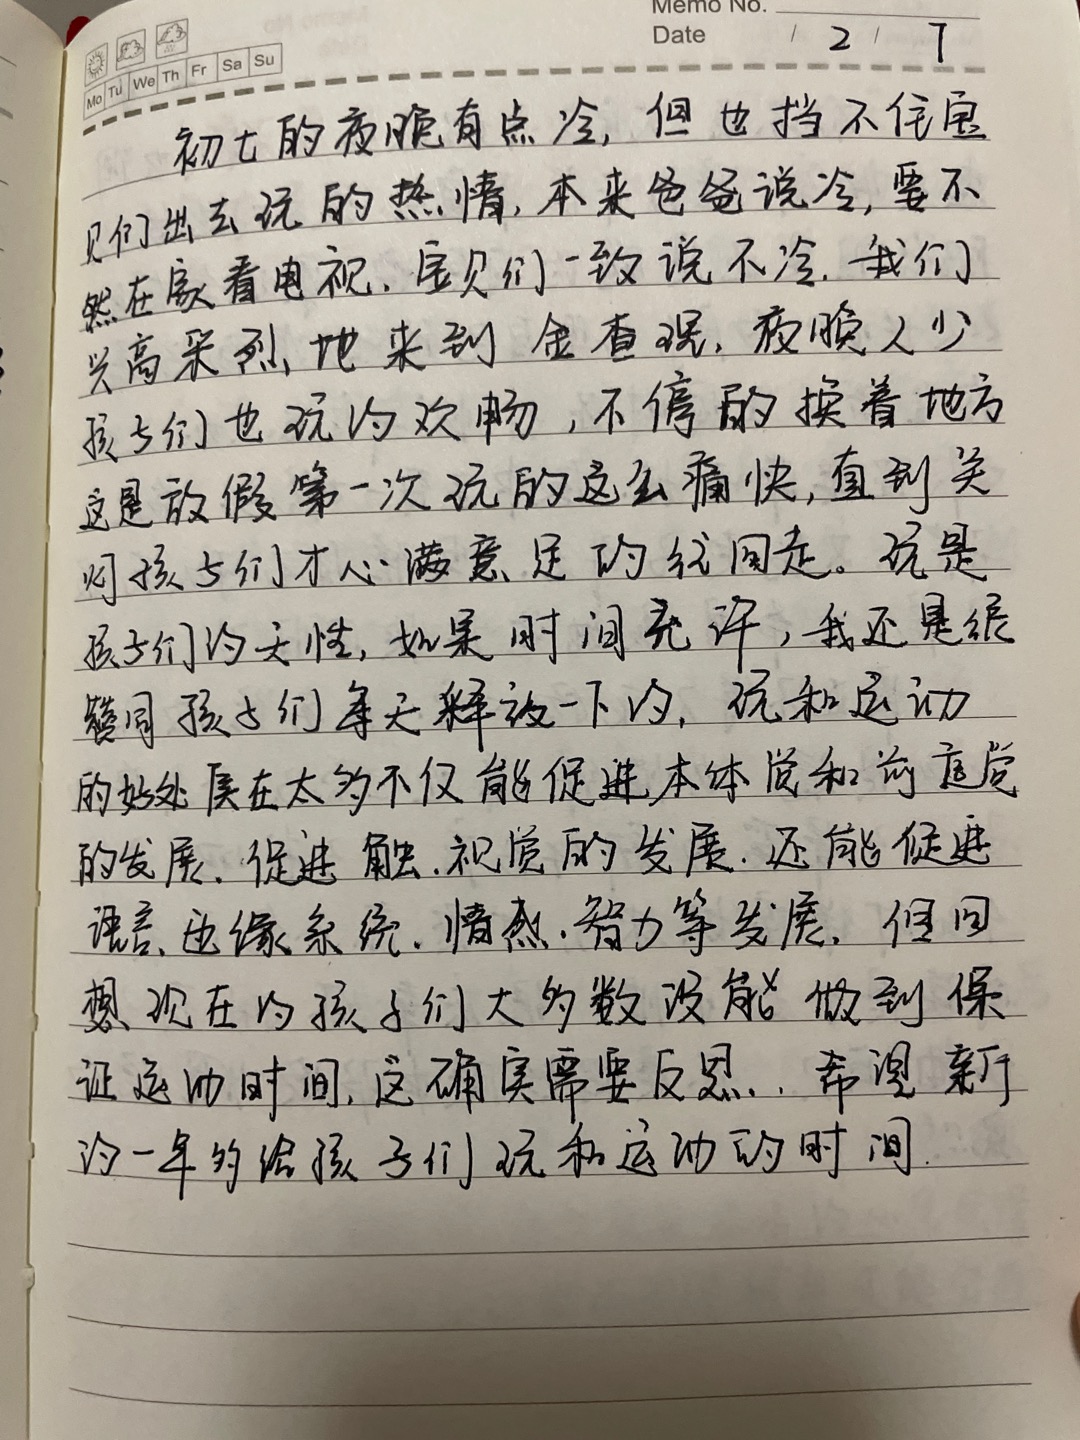 Memo No.
Date / 2 / 7
Mo Tu We Th Fr Sa Su
初七的夜晚有点冷，但也挡不住宝
贝们出去玩的热情，本来爸爸说冷，要不
然在家看电视．宝贝们一致说不冷．我们
兴高采烈地来到金查．夜晚人少
孩子们也玩的欢畅，不停的换着地方
这是放假第一次玩的这么痛快，直到关
灯孩子们才心满意足的往回走。玩是
孩子们的天性，如果时间充许，我还是很
赞同孩子们每天释放一下的，玩和运动
的好处实在太多不仅能促进本体觉和前庭觉
的发展．促进触．视觉的发展．还能促进
语言、边缘系统．情感．智力等发展．但回
想现在的孩子们大多数没能做到保
证运动时间，这确实需要反思．．希望新
的一年多给孩子们玩和运动的时间．